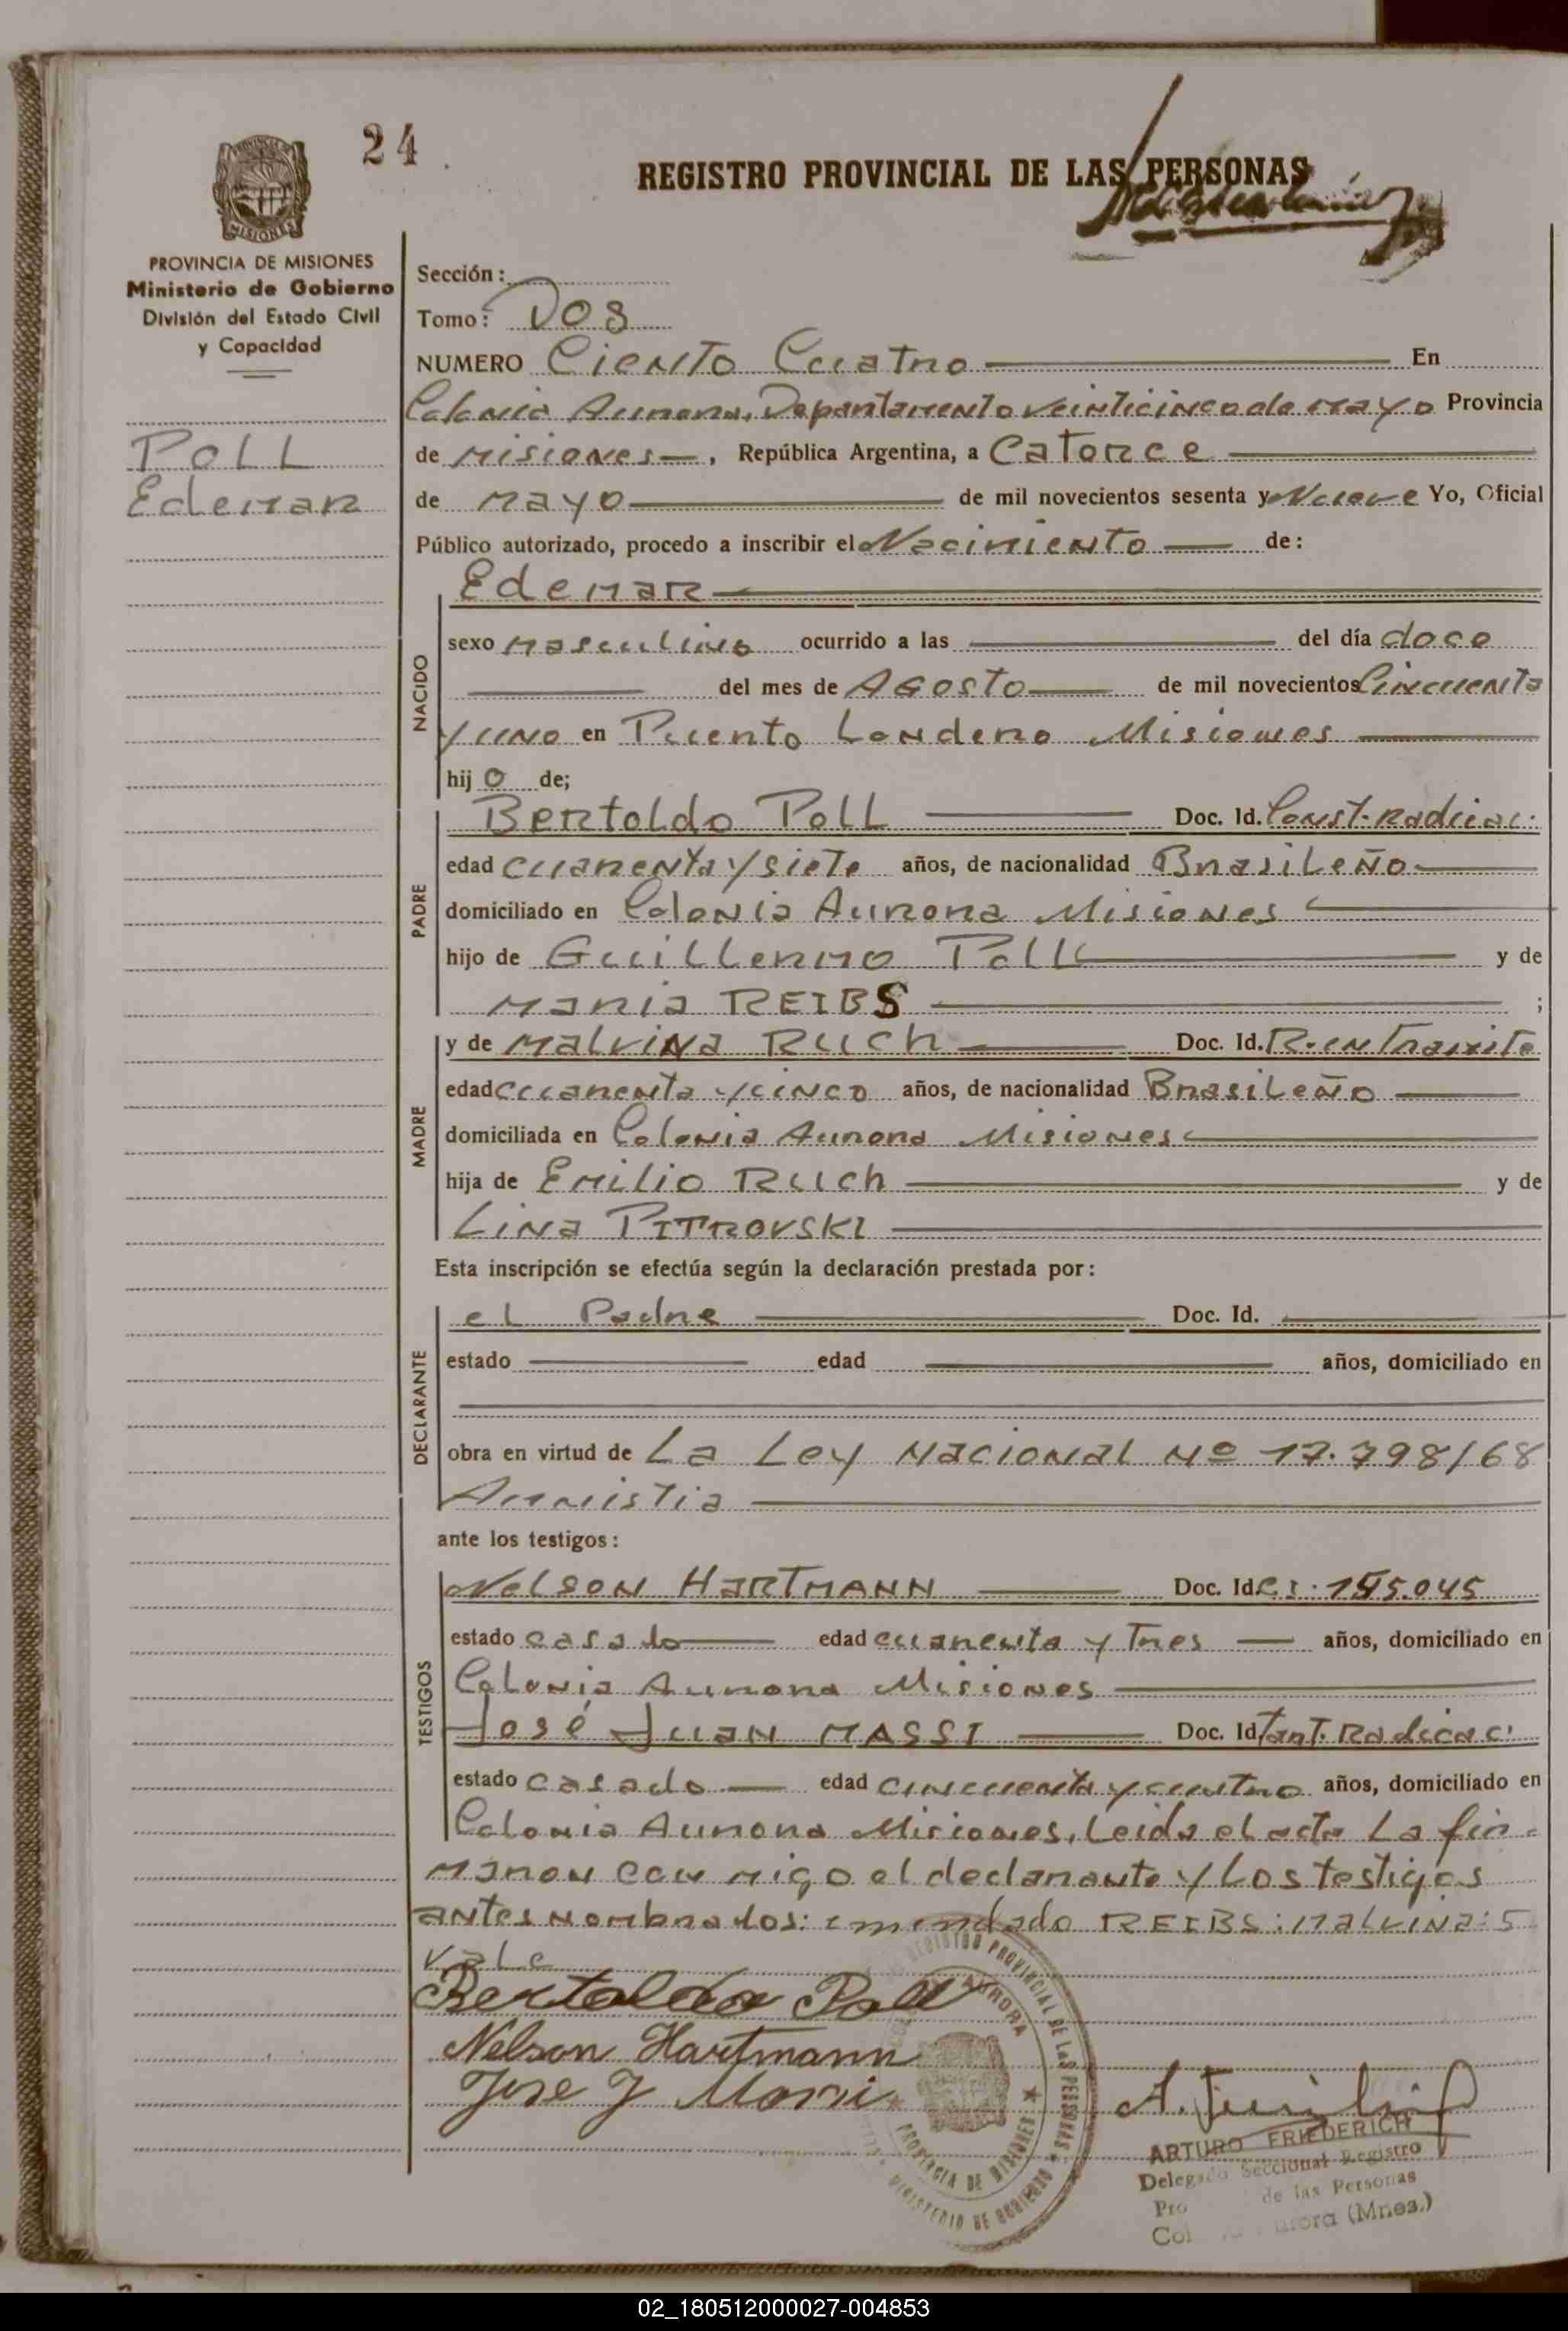 24
REGISTRO PROVINCIAL DE LAS PERSONAS
PROVINCIA DE MISIONES
Ministerio de Gobierno
División del Estado Civil
y Capacidad
POLL
Edemar
Sección:
Tomo: Dos
NUMERO Ciento Cuatro En
Colonia Aurora, Departamento veinticinco de mayo Provincia
de Misiones, República Argentina, a Catorce
de mayo de mil novecientos sesenta y Nueve Yo, Oficial
Público autorizado, procedo a inscribir el Nacimiento de:
NACIDO
Edemar
sexo masculino ocurrido a las del día doce
del mes de Agosto de mil novecientos Cincuenta
y uno en Puerto Londero Misiones
hijo de;
PADRE
Bertoldo Poll Doc. Id. Const. Radicac.
edad cuarenta y siete años, de nacionalidad Brasileño
domiciliado en Colonia Aurora Misiones
hijo de Guillermo Poll y de
Maria REIBS ;
MADRE
y de Malvina Ruch Doc. Id. R. en Tramite
edad cuarenta y cinco años, de nacionalidad Brasileño
domiciliada en Colonia Aurora Misiones
hija de Emilio Ruch y de
Lina PITROVSKI
Esta inscripción se efectúa según la declaración prestada por:
DECLARANTE
el Padre Doc. Id.
estado edad años, domiciliado en
obra en virtud de La Ley Nacional Nº 17.798/68
Amnistia
ante los testigos:
TESTIGOS
Nelson HARTMANN Doc. Id. C.I. 155.045
estado casado edad cuarenta y Tres años, domiciliado en
Colonia Aurora Misiones
José Juan MASSI Doc. Id. Radicac.
estado casado edad cincuenta y cuatro años, domiciliado en
Colonia Aurora Misiones. Leida el acta La fir-
maron con migo el declarante y Los testigos
antes nombrados: enmendado REIBS: Malvina: 5
vale
Bertoldo Poll
Nelson Hartmann
Jose J Massi
REGISTRO PROVINCIAL DE LAS PERSONAS
AURORA
PROVINCIA DE MISIONES
MINISTERIO DE GOBIERNO
ARTURO FRIEDERICH
Delegado Seccional Registro
de las Personas
(Mnes.)
02_180512000027-004853